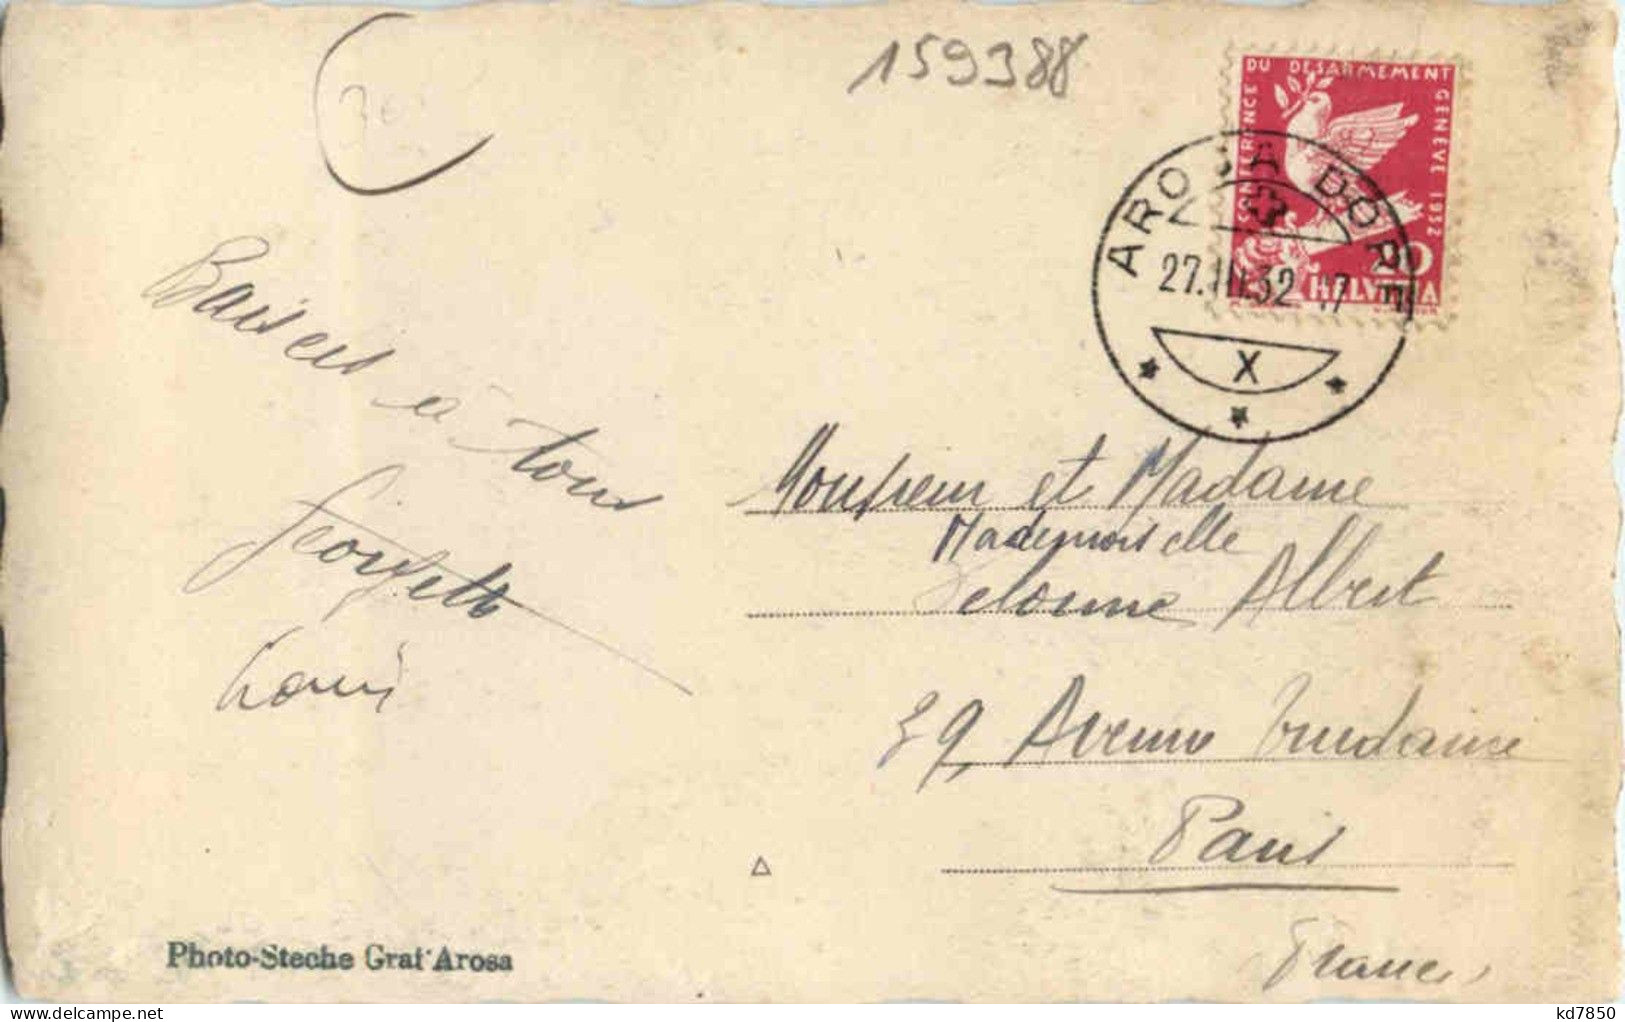 159388
CONFERENCE DU DESARMEMENT GENÈVE 1932
20
HELVETIA
AROSA DORF
27.III.32
X
Baisers à tous
Georgette
Louis
Monsieur et Madame
Mademoiselle
Albert
59, Avenue Trudaine
Paris
France
Photo-Steche Graf Arosa
kd7850